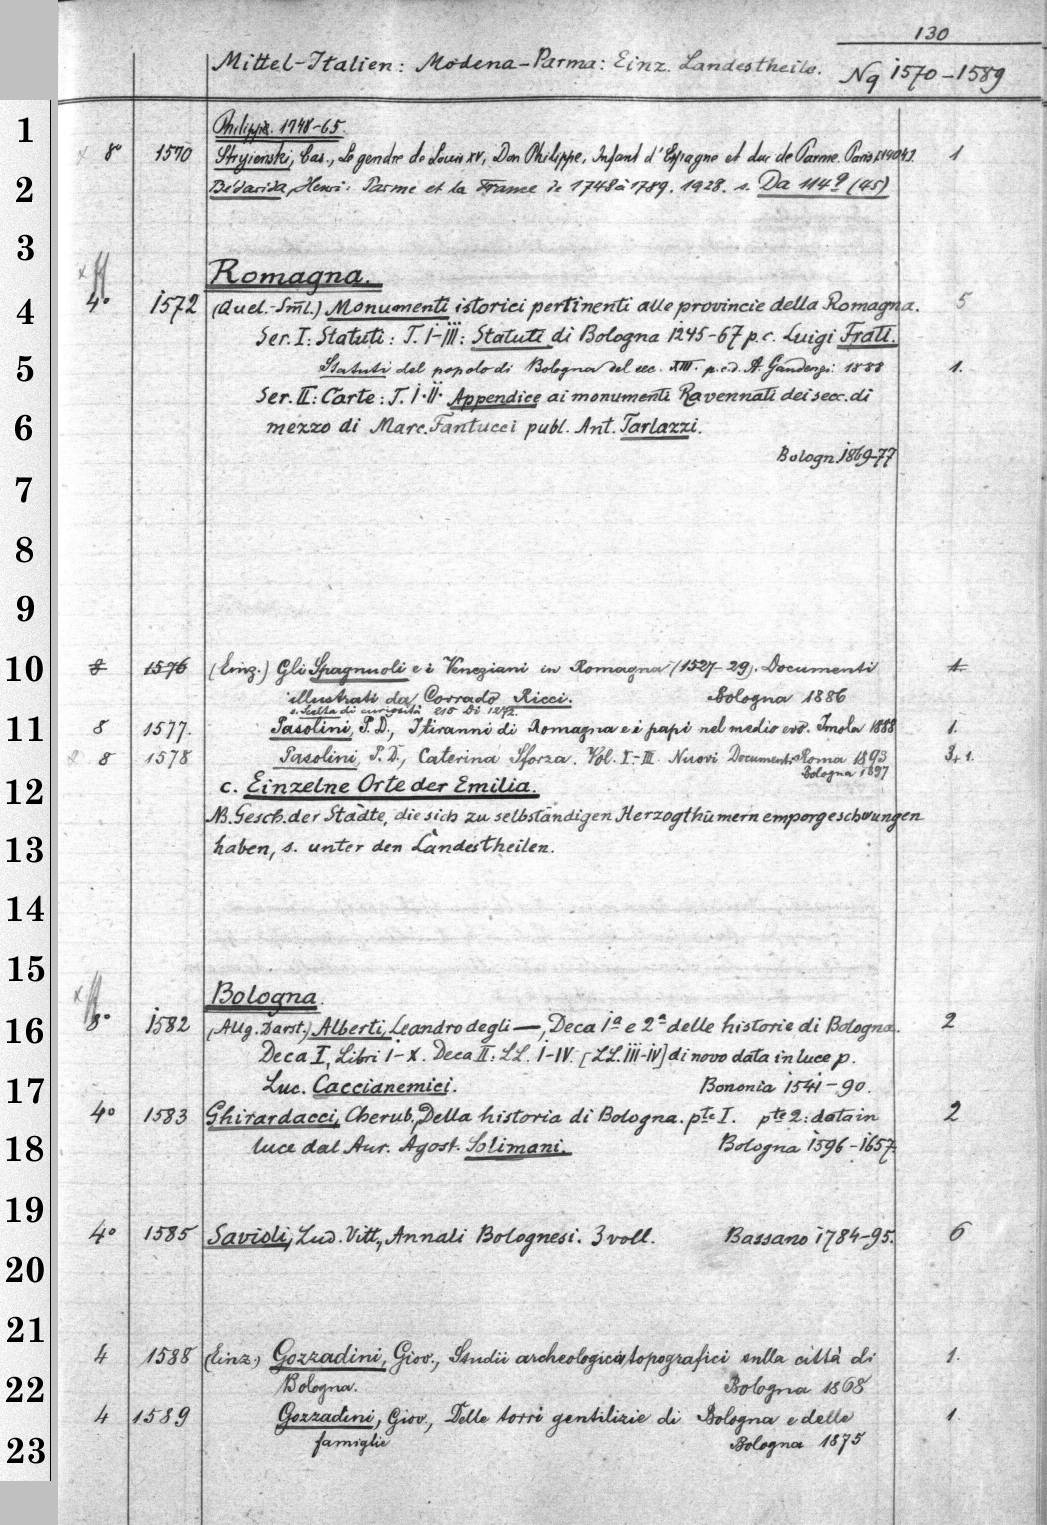 130
Mittel-Italien: Modena-Parma: Einz. Landestheile. Nq 1570-1589
1
Philipp. 1748-65.
8° 1570 Stryienski, Cas., Le gendre de Louis XV, Don Philippe, Infant d'Espagne et duc de Parme. Paris [1904]. 1
2 Bédarida, Henri: Parme et la France de 1748 à 1789. 1928. s. Da 114 g (45)
3
Romagna.
4 4° 1572 (Quel.-Sml.) Monumenti istorici pertinenti alle provincie della Romagna. 5
Ser. I: Statuti: T. I-III: Statuti di Bologna 1245-67 p. c. Luigi Frati.
5 Statuti del popolo di Bologna del sec. XIII. p. c. d. A. Gaudenzi: 1888 1.
Ser. II: Carte: T. I. II. Appendice ai monumenti Ravennati dei secc. di
6 mezzo di Marc. Fantucci publ. Ant. Tarlazzi.
Bologn. 1869-77
7
8
9
10 8 1576 (Einz.) Gli Spagnuoli e i Veneziani in Romagna (1527-29). Documenti 1
illustrati da Corrado Ricci. Bologna 1886
s. Scelta di curiosità 210 Di 1272.
11 8 1577. Pasolini, P. D., I tiranni di Romagna e i papi nel medio evo. Imola 1888 1.
8 1578 Pasolini, P. D., Caterina Sforza. Vol. I-III. Nuovi Documenti Roma 1893 3+1.
Bologna 1897
12 c. Einzelne Orte der Emilia.
NB. Gesch. der Städte, die sich zu selbständigen Herzogthümern emporgeschwungen
13 haben, s. unter den Landestheilen.
14
15
Bologna.
16 8° 1582 (Allg. Darst.) Alberti, Leandro degli —, Deca 1a e 2a delle historie di Bologna. 2
Deca I, Libri I-X. Deca II: LL. I-IV. [LL. III-IV] di novo data in luce p.
17 Luc. Caccianemici. Bononia 1541-90.
4° 1583 Ghirardacci, Cherub., Della historia di Bologna. pte I. pte 2: data in 2
18 luce dal Aur. Agost. Solimani. Bologna 1596-1657.
19
4° 1585 Savioli, Lud. Vitt., Annali Bolognesi. 3 voll. Bassano 1784-95. 6
20
21
4 1588 (Einz.) Gozzadini, Giov., Studii archeologico-topografici sulla città di 1.
22 Bologna. Bologna 1868
4 1589 Gozzadini, Giov., Delle torri gentilizie di Bologna e delle 1.
23 famiglie Bologna 1875